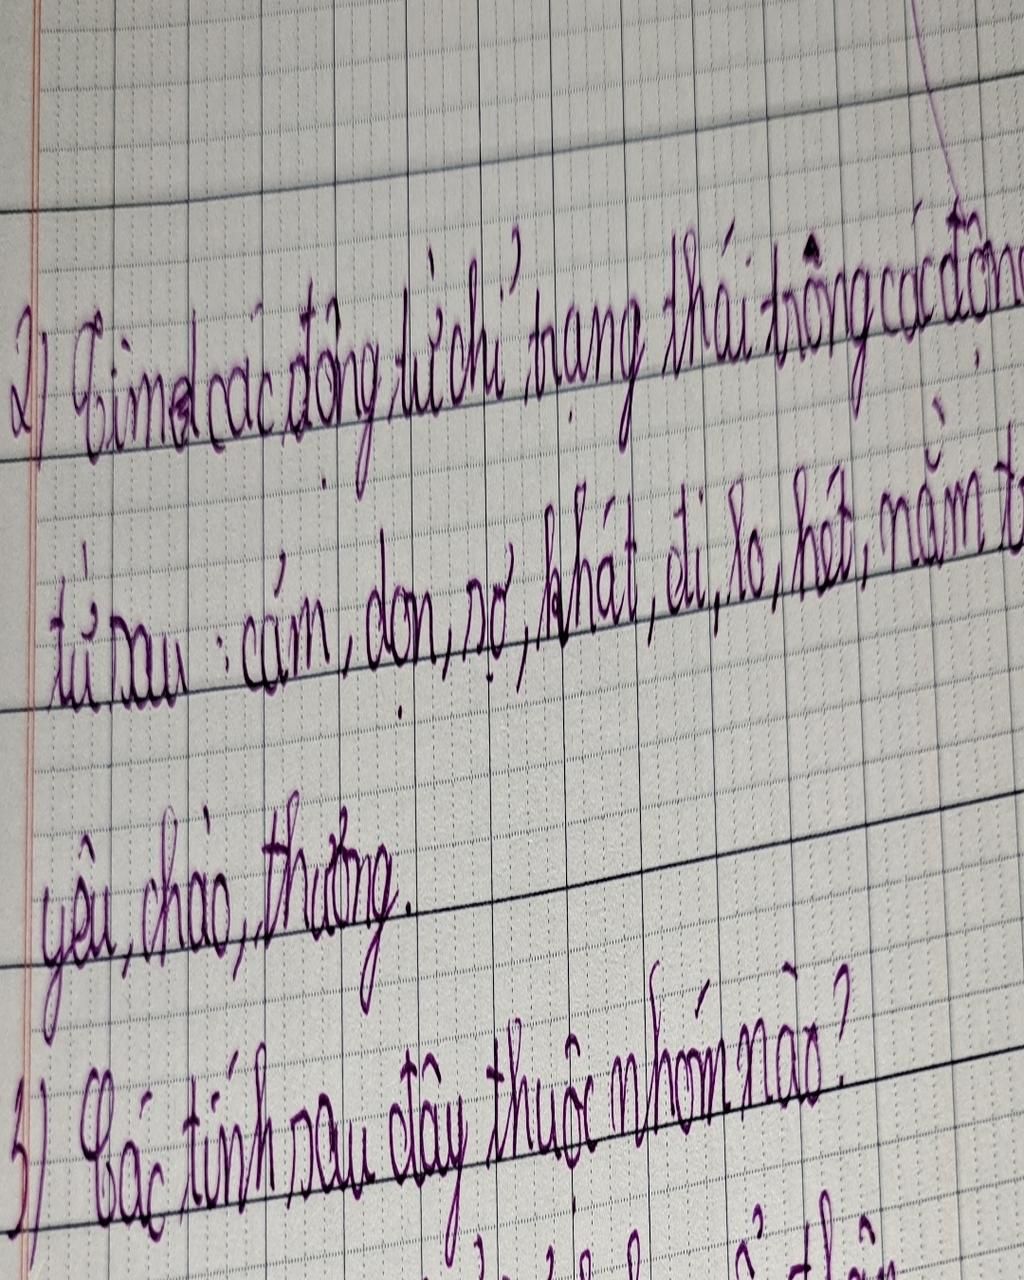 2) Tìm các động từ chỉ trạng thái trong các động
từ sau : cắm, dọn, sợ, khát, đi, lo, hét, nằm
yêu, chào, thương.
3) Các tính sau đây thuộc nhóm nào?